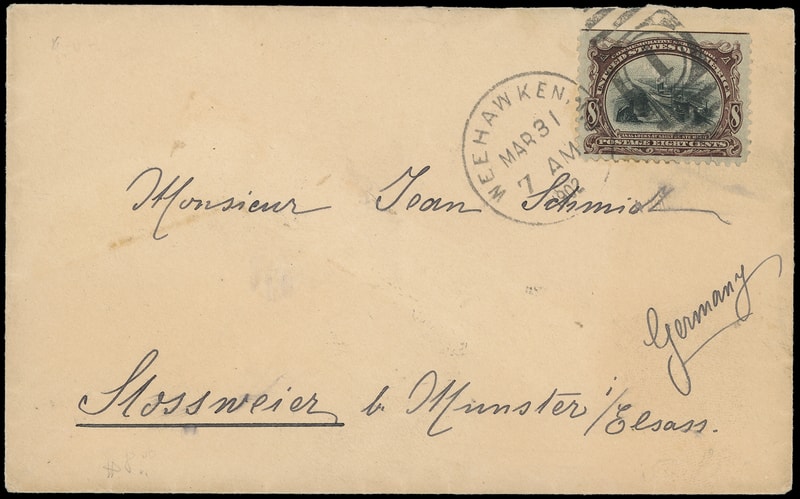 UNITED STATES OF AMERICA
1
8 8
POSTAGE EIGHT CENTS
WEEHAWKEN, N.
MAR 31
7 AM
1902
Monsieur Jean Schmidt
Germany
Stossweier b. Munster i/Elsass.